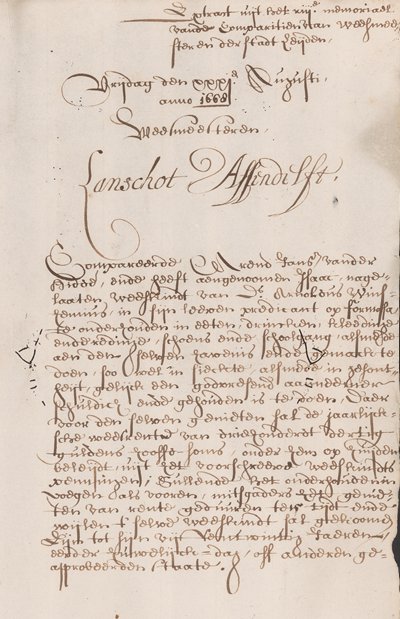 Extract uijt het xiiije memoriael
vande Comparitien van Weesmee-
steren der stadt Leijden.
Vrijdag den xxxje Augusti,
anno 1668.
Weesmeesteren,
Lanschot Assendelft.
Compareerde Arend Jans vander
ende heeft aengenoomen Isaac, nage-
laaten weeskindt van Ds. Arnoldus Wins-
hemius, in sijn leeven predicant op formosa
te onderhouden in eeten, drincken, kleedinge
ende reedinge, schoens ende schoolgang, alsmede
aen den selven havenis ende gemack te
doen, soo wel in sieckte, alsmede in gesont-
heijt, gelijck een godvresend aenneemer
schuldich ende gehouden is te doen, Daer
voor den selven genieten sal de jaarlijck-
sche weesrente van driehonderdt dertig
guldens hooft soms, onder hem op huijden
beleijdt, uijt het voorschreeve weeskindts
penningen; Sullende het onderhouden in
voegen als vooren, mitsgaders het genie-
ten van rente geduuren ter tijdt ende
wijlen 't selve weeskindt sal gekoomen
sijn tot sijn vijfentwintig jaeren,
eerder huwelijcks-dag, off anderen ge-
approbeerden staate.